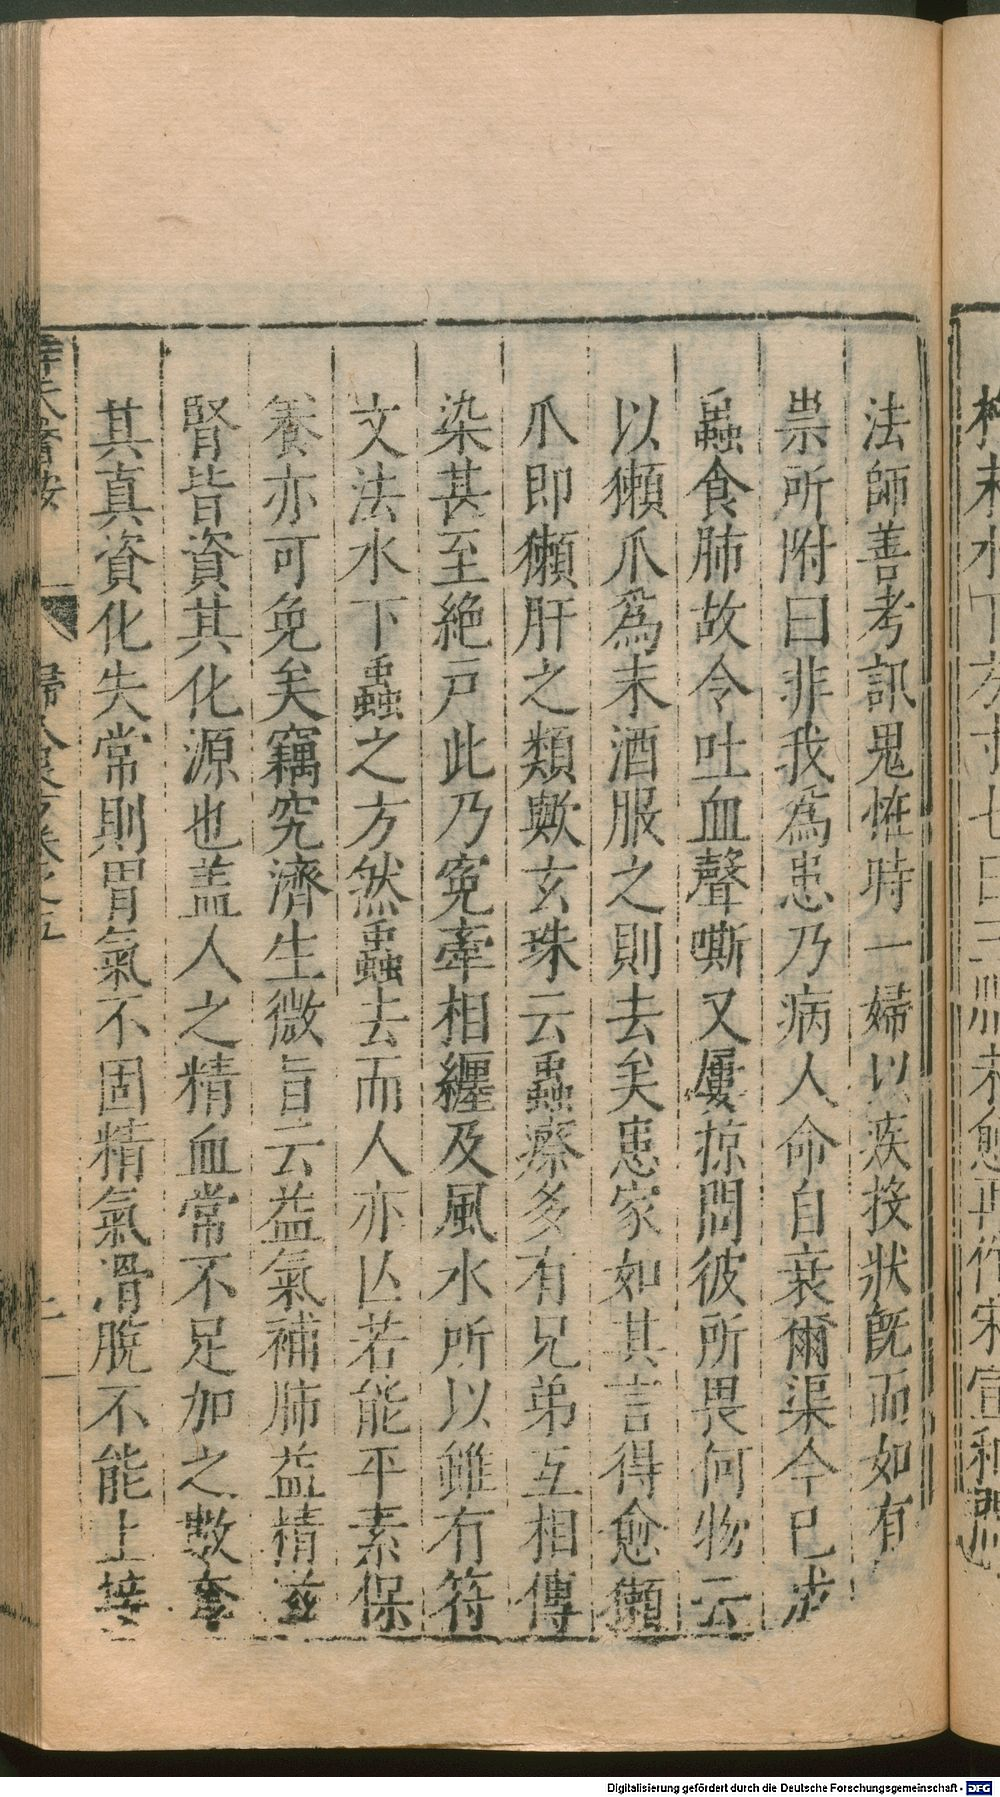 法師善考訊鬼恠時一婦以疾投狀旣而如有
祟所附曰非我爲患乃病人命自衰爾渠今已成
蟲食肺故令吐血聲嘶又屢掠問彼所畏何物云
以獺爪爲末酒服之則去矣患家如其言得愈獺
爪即獺肝之類歟玄珠云蟲瘵多有兄弟互相傳
染甚至絶戸此乃寃牽相纏及風水所以雖有符
文法水下蟲之方然蟲去而人亦亾若能平素保
養亦可免矣竊究濟生微旨云益氣補肺益精滋
腎皆資其化源也盖人之精血常不足加之數奪
其真資化失常則胃氣不固精氣滑脫不能上接
婦人良方卷之五
Digitalisierung gefördert durch die Deutsche Forschungsgemeinschaft - DFG